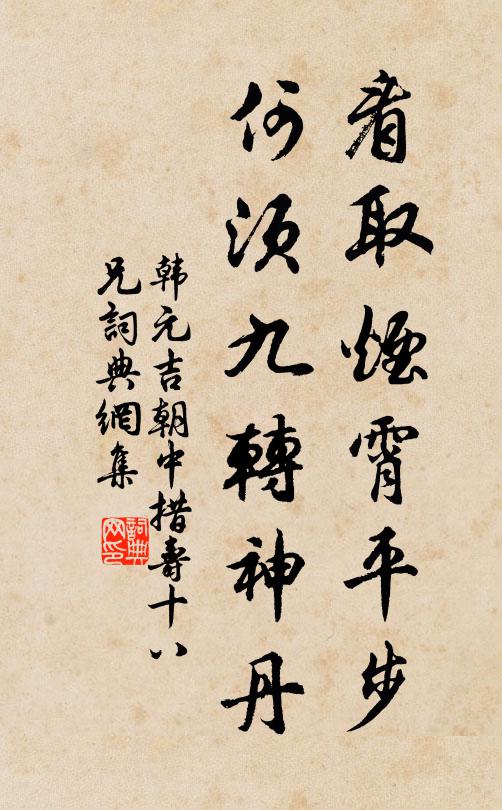 看取煙霄平步
何須九轉神丹
韩元吉朝中措壽十八
兄詞典網集
詞典網印